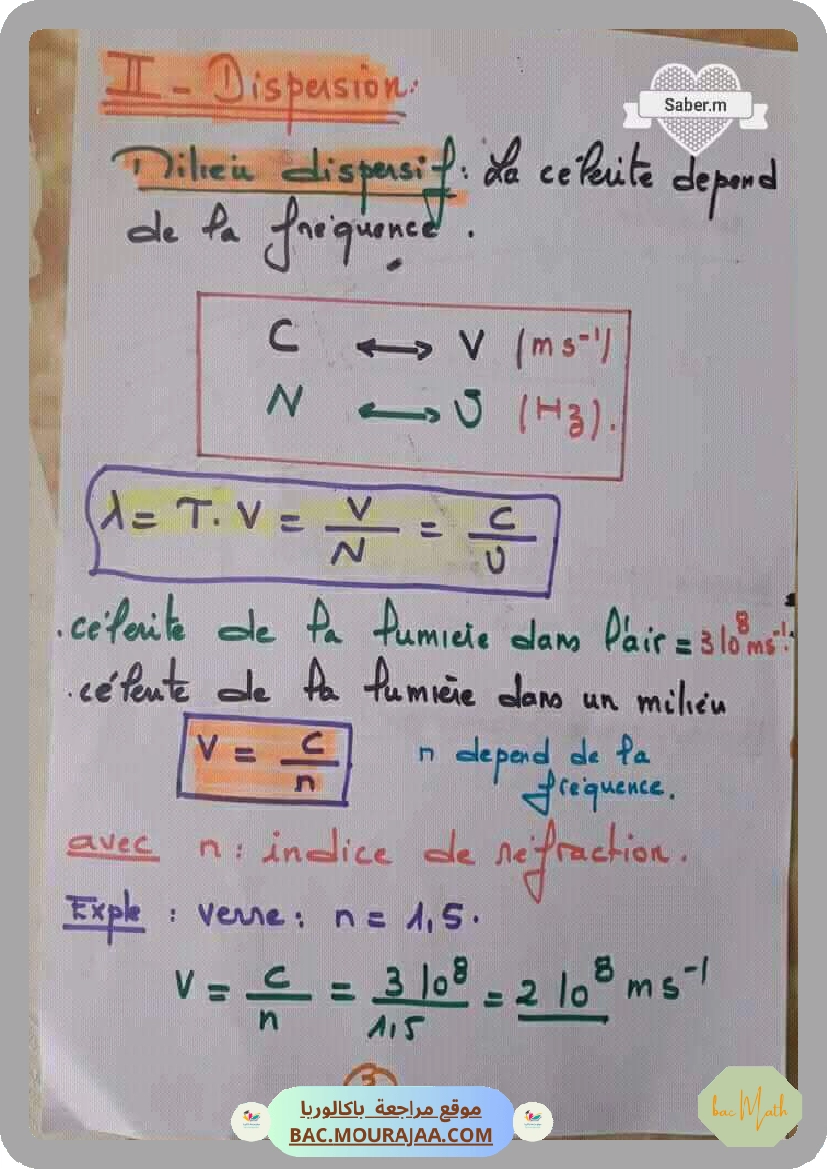 II - Dispersion.
Saber.m
Milieu dispersif : La célérité dépend
de la fréquence.
C ⟷ V (m s⁻¹)
N ⟷ υ (Hz).
λ = T. V = V/N = C/υ
. célérité de la lumière dans l'air = 3 10⁸ ms⁻¹.
. célérité de la lumière dans un milieu
V = C/n n dépend de la
fréquence.
avec n : indice de réfraction.
Exple : verre : n = 1,5.
V = C/n = 3 10⁸/1,5 = 2 10⁸ m s⁻¹
3
موقع مراجعة باكالوريا
BAC.MOURAJAA.COM
bac Math